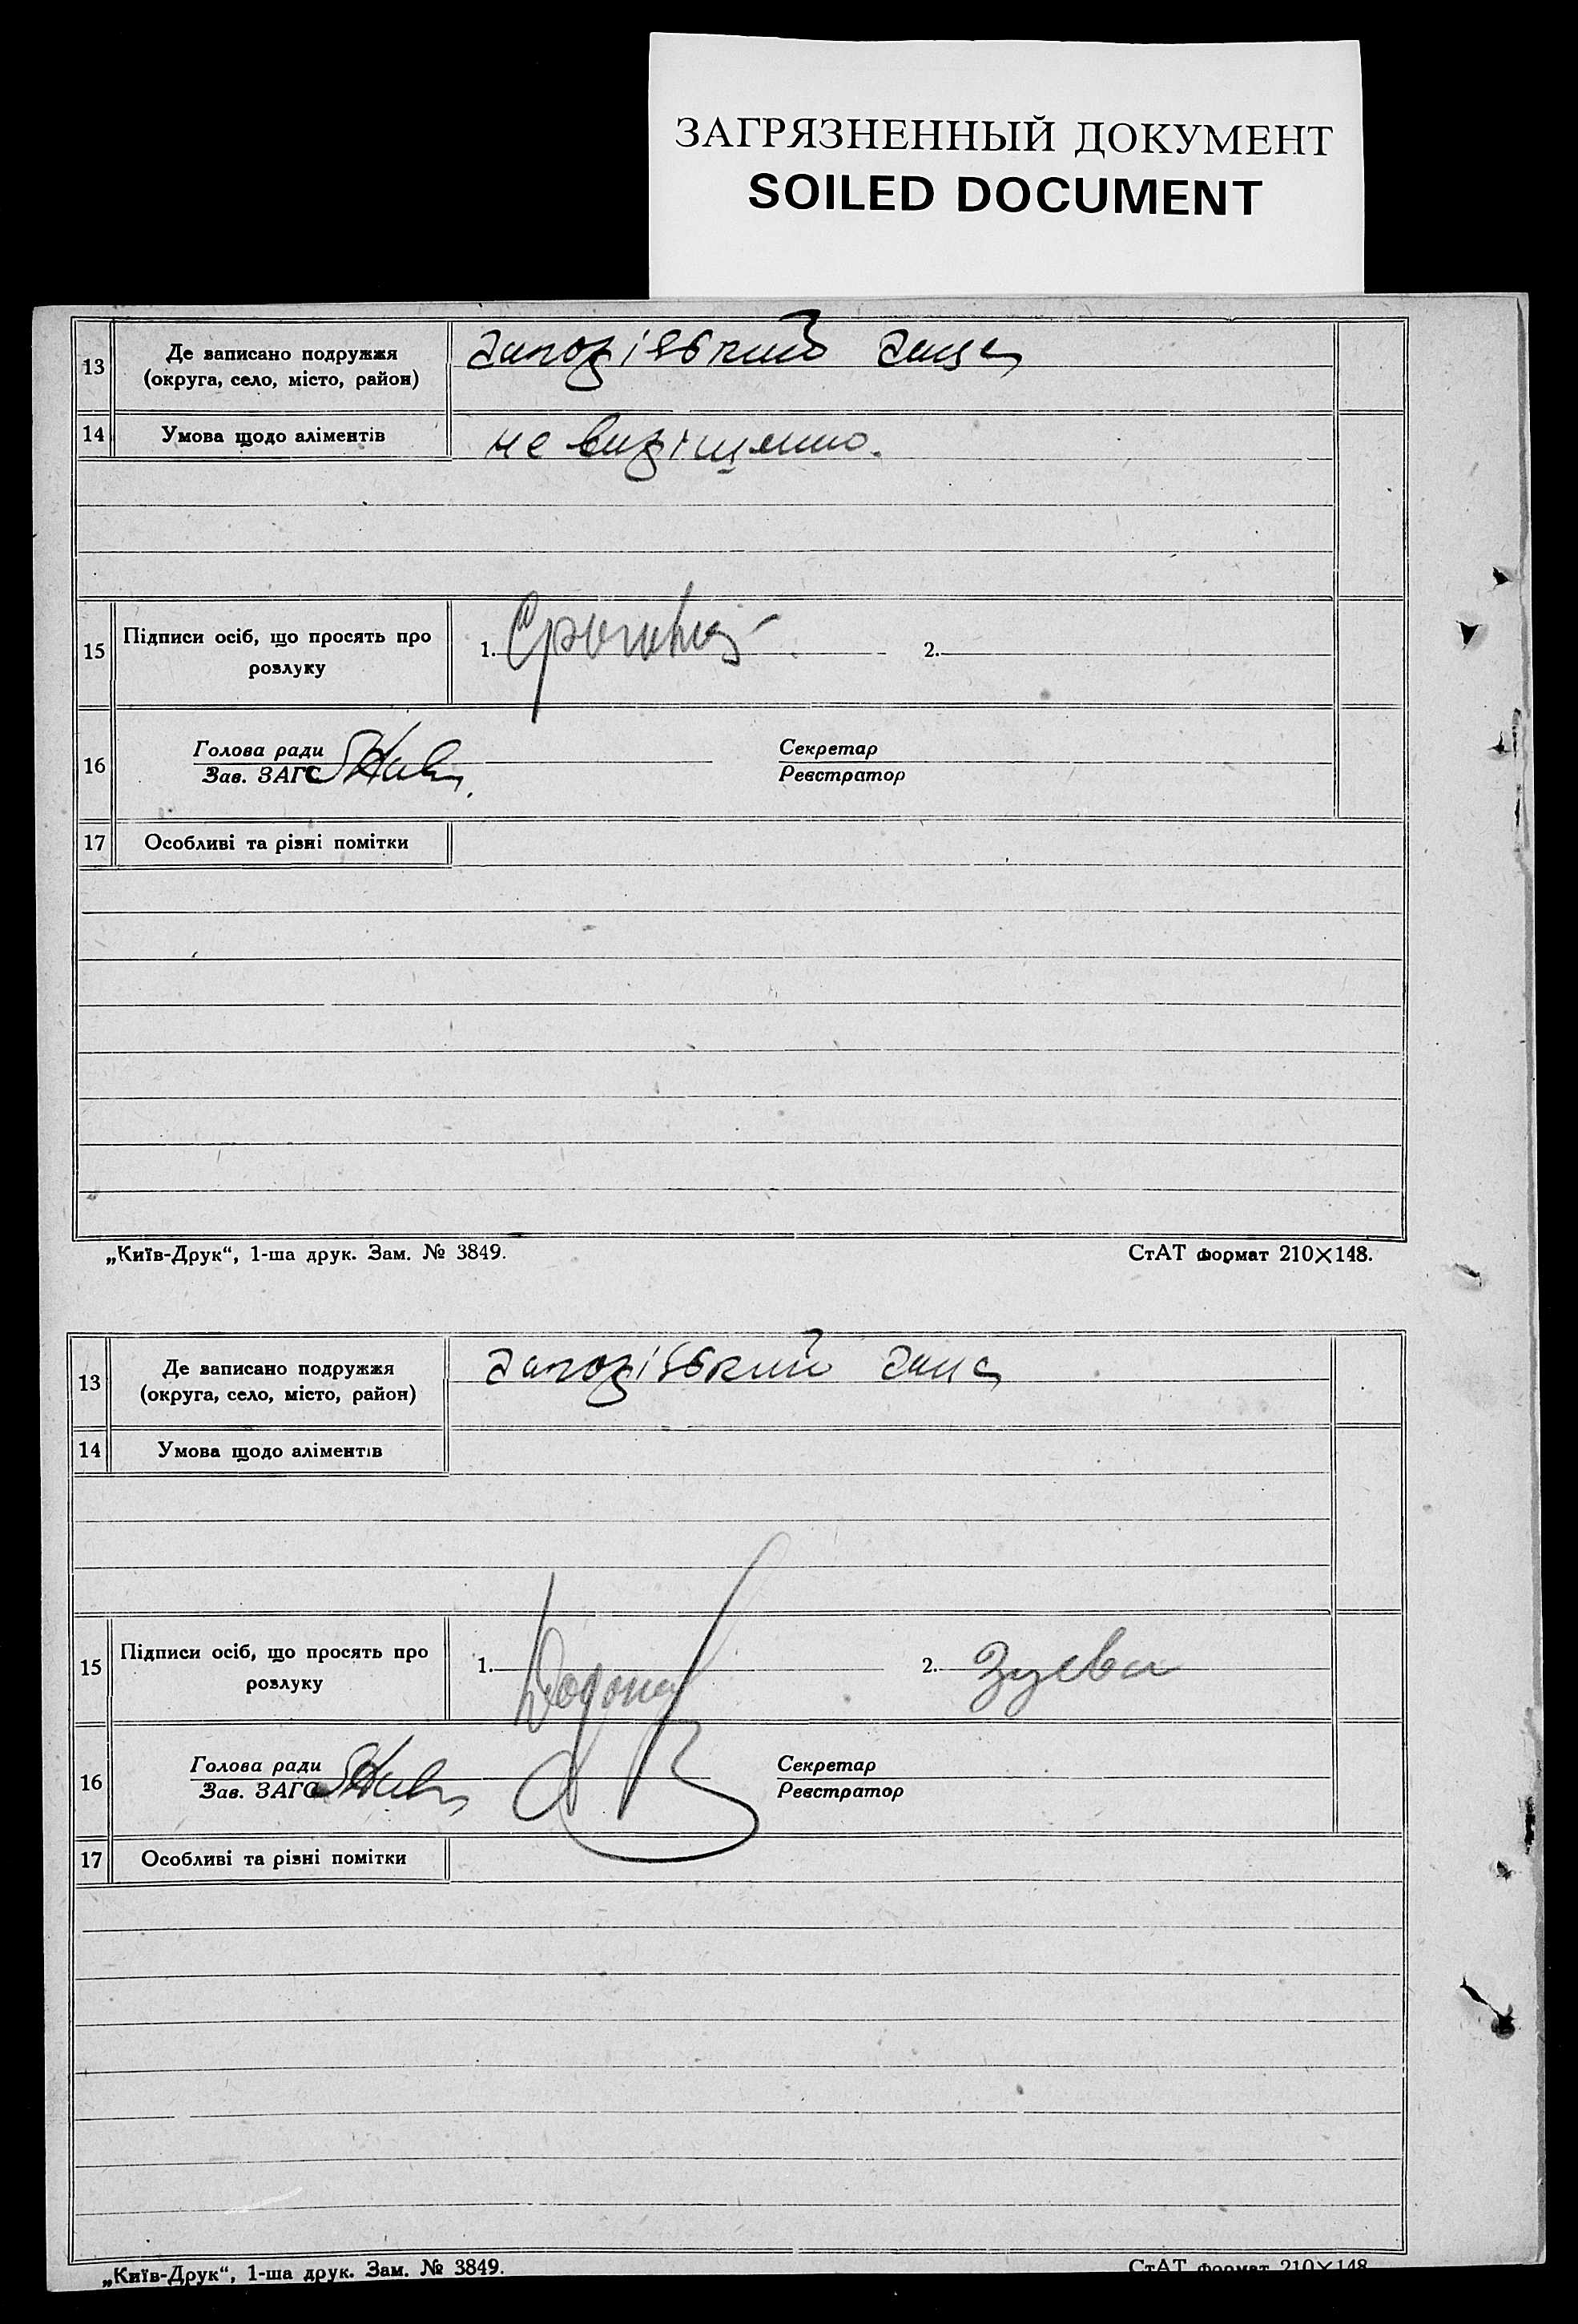 ЗАГРЯЗНЕННЫЙ ДОКУМЕНТ
SOILED DOCUMENT
13
Де записано подружжя
(округа, село, місто, район)
14
Умова щодо аліментів
не вирішенно.
15
Підписи осіб, що просять про
розлуку
1.
2.
16
Голова ради
Зав. ЗАГС
Секретар
Реєстратор
17
Особливі та різні помітки
„Київ-Друк“, 1-ша друк. Зам. № 3849.
СтАТ формат 210×148.
13
Де записано подружжя
(округа, село, місто, район)
14
Умова щодо аліментів
15
Підписи осіб, що просять про
розлуку
1.
2. Зуева
16
Голова ради
Зав. ЗАГС
Секретар
Реєстратор
17
Особливі та різні помітки
„Київ-Друк“, 1-ша друк. Зам. № 3849.
СтАТ формат 210×148